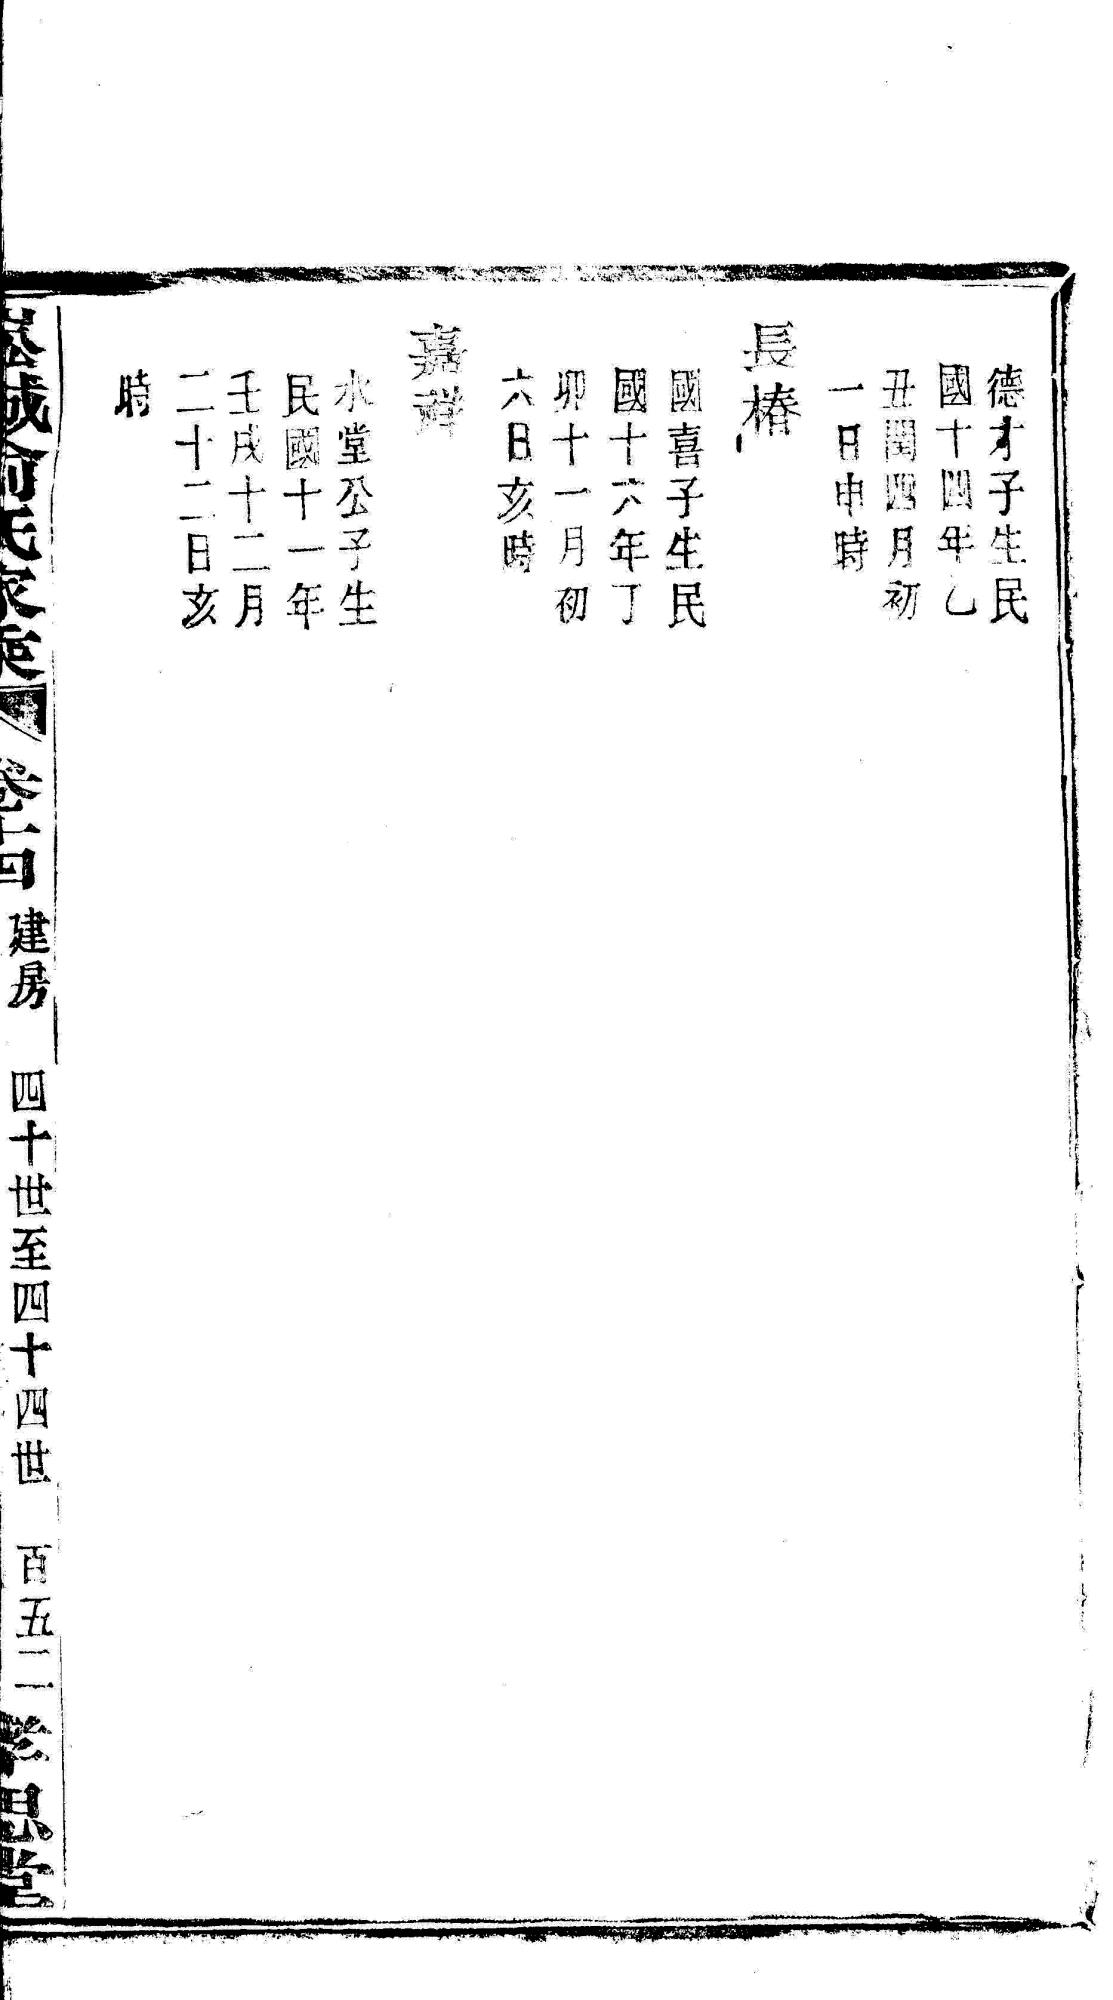 德才子生民
國十四年乙
丑閏四月初
一日申時
長椿
國喜子生民
國十六年丁
卯十一月初
六日亥時
嘉祥
水堂公子生
民國十一年
壬戌十二月
二十二日亥
時
俞氏家乘 卷十四 建房 四十世至四十四世 百五二 孝思堂